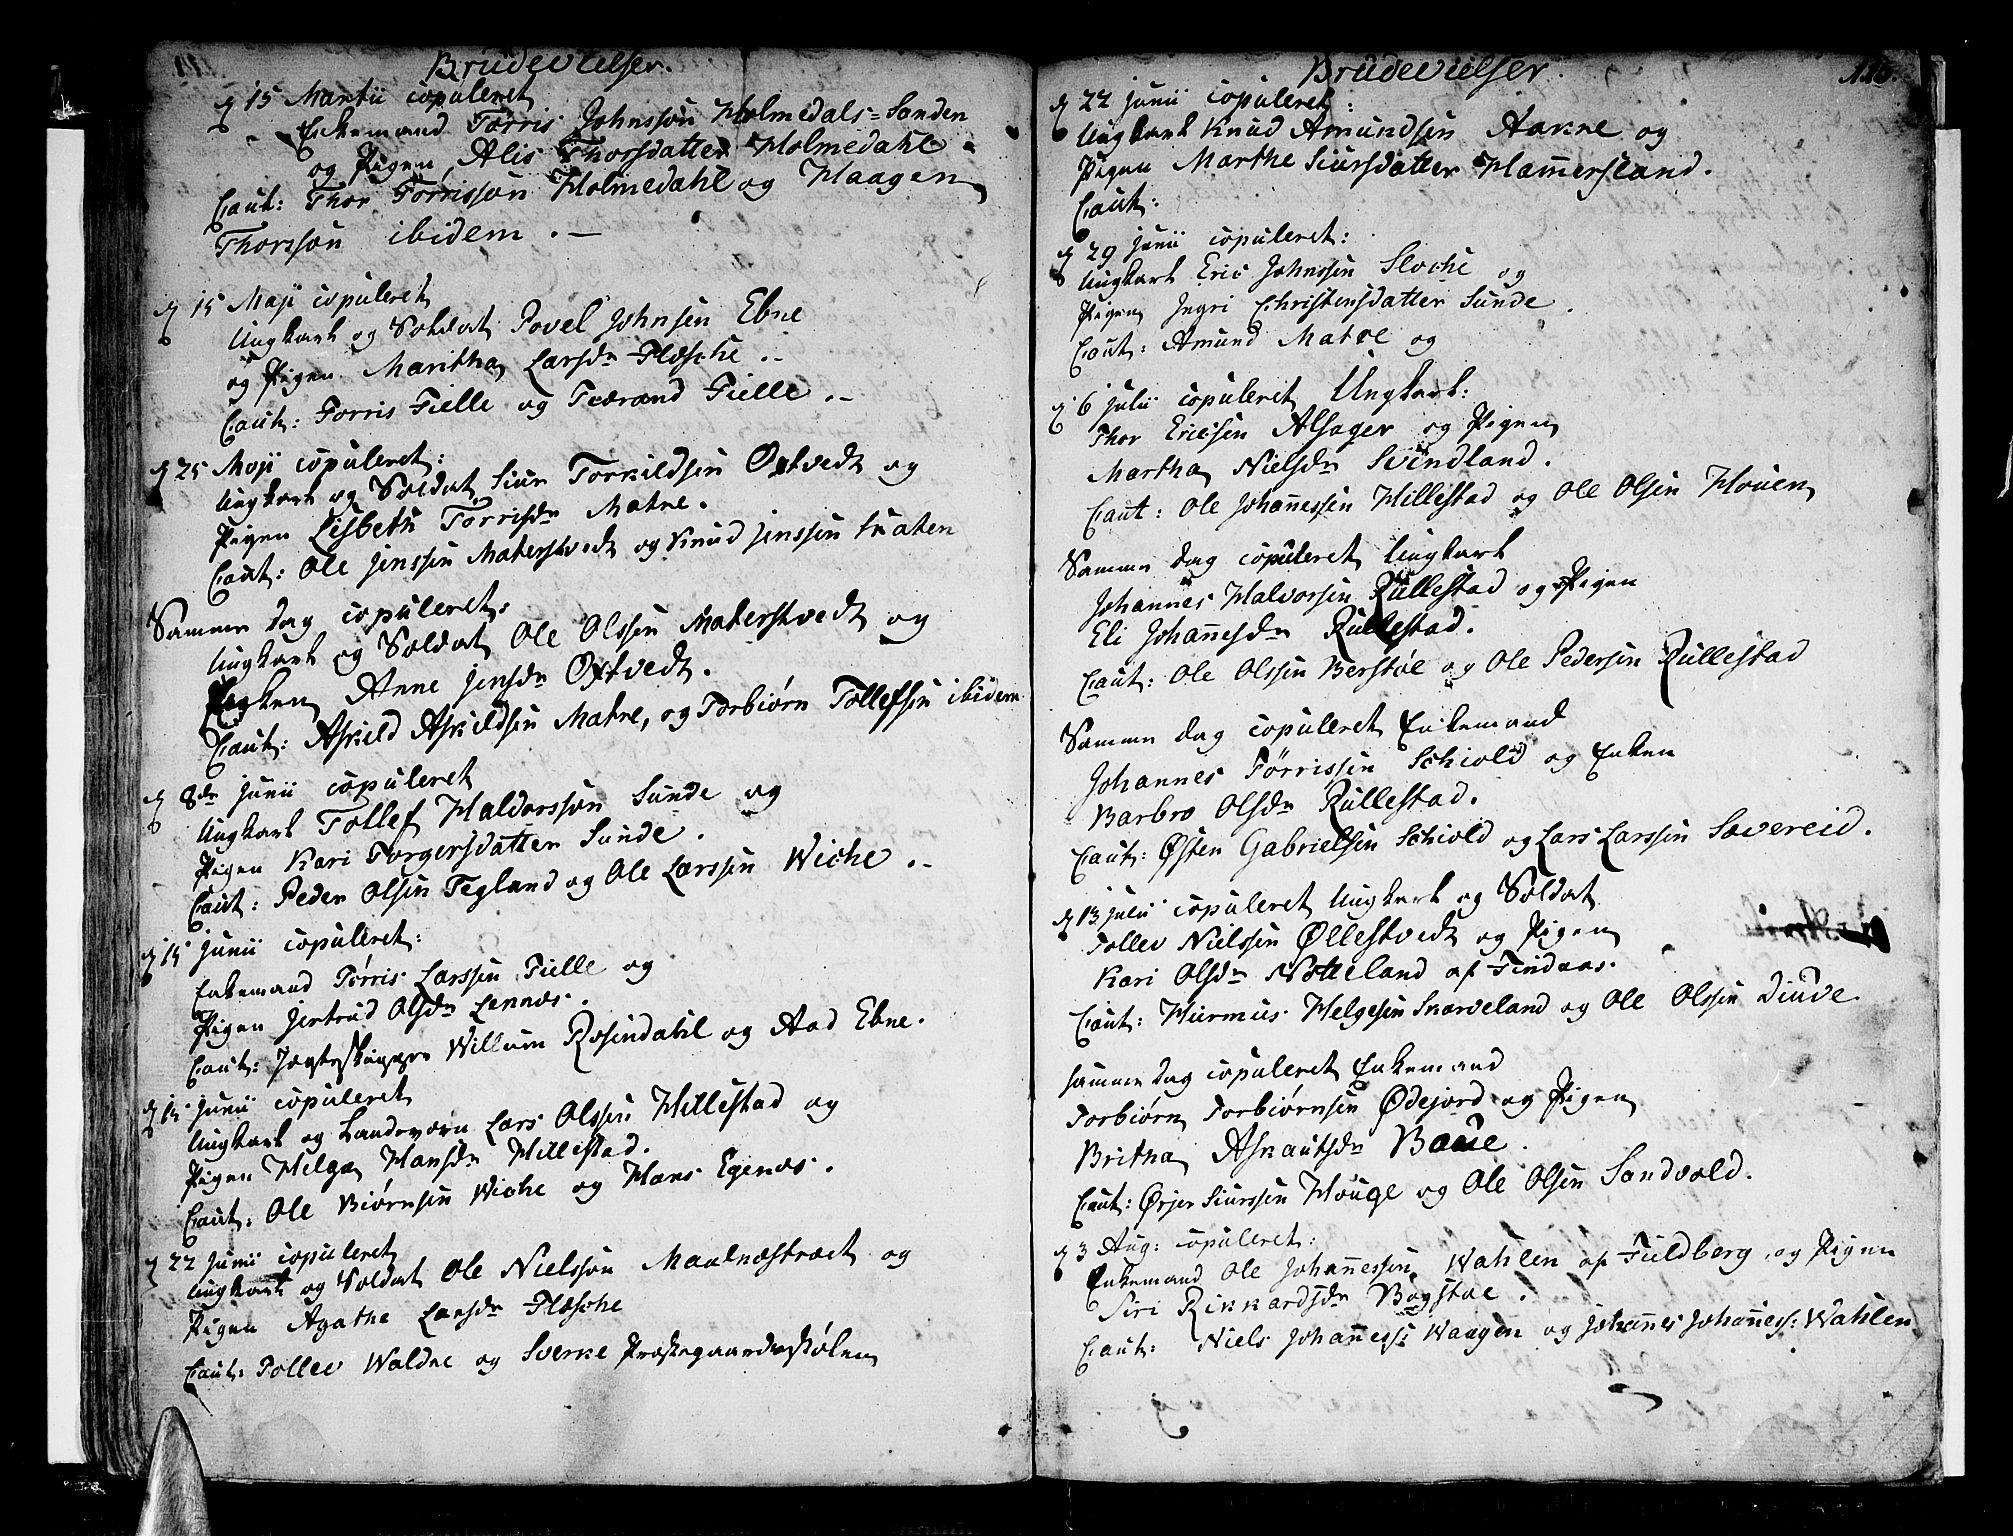 Brudevielser.
d 15 Martii copuleret
Enkemand Tørris Johnssøn Holmedals=Sanden
og Pigen Alis Thorsdatter Holmedahl
Caut: Thor Tørrissøn Holmedahl og Haagen
Thorssøn ibidem.
d 15 Maji copuleret
Ungkarl og Soldat Povel Johnsen Ebne
og Pigen Maritha Larsdr Flæsche.
Caut: Torris Fielle og Tværand Fielle.
d 25 Maji copuleret:
Ungkarl og Soldat Siur Torkildsen Øxtvedt og
Pigen Lisbeth Torrisdr Matre.
Caut: Ole Jenssen Matershvedt og Knud Jenssen Traaten
Samme dag copuleret:
Ungkarl og Soldat Ole Olssen Materstvedt og
Anne Jensdr Øxtvedt.
Caut: Askild Askildsen Matre, og Torbiørn Tollefsen ibidem
d 8de Junii copuleret
Ungkarl Tollef Haldorssøn Sunde og
Pigen Kari Torgersdatter Sunde.
Caut: Peder Olsen Tegland og Ole Larssen Wiche.
d 15 Junii copuleret:
Enkemand Tørris Larssen Fielle og
Pigen Jertrud Olsdr Lennæs.
Caut: Jægteskipper Willum Rosendahl og Aad Ebne.
d 15 Junii copuleret
Ungkarl og Landeværn Lars Olssen Millestad og
Pigen Helga Hansdr Millestad.
Caut: Ole Biørnsen Wiche og Hans Egenæs.
d 22 Junii copuleret
Ungkarl og Soldat Ole Nielssøn Maalnæstræet og
Pigen Agathe Larsdr Flæsche
Caut: Tollev Waldre og Sverke Præstegaardsstølen
Brudevielser.
d 22 Junii copuleret:
Ungkarl Knud Amundsen Aakre og
Pigen Marthe Siursdatter Ham̄ersland.
Caut:
d 29 Junii copuleret:
Ungkarl Eric Johnssen Sloche og
Pigen Ingri Christensdatter Sunde.
Caut: Amund Matre og
d 6 Julii copuleret Ungkarl:
Thor Ericsen Alsager og Pigen
Martha Nielsdr Svindland.
Caut: Ole Johan̄essen Millestad og Ole Olsen Houen
Samme dag copuleret Ungkarl
Johannes Halvorsen Rullestad og Pigen
Eli Johan̄esdr Rullestad.
Caut: Ole Olssen Berstøe og Ole Pedersen Rullestad
Samme dag copuleret Enkemand
Johannes Tørrissen Schiold og Enken
Barbro Olsdr Rullestad.
Caut: Østen Gabrielsen Schiold og Lars Larssen Savereid.
d 13 Julii copuleret Ungkarl og Soldat
Tollev Nielssen Øllestvedt og Pigen
Kari Olsdr Notteland af Findaas.
Caut: Hiermus Helgesen Skarveland og Ole Olssen Diuve.
Samme dag copuleret Enkemand
Torbiørn Torbiørnsen Ødejord og Pigen
Britha Askautsdr Baue.
Caut: Ørjer Siurssen Houge og Ole Olsen Sandvold.
d 3 Aug: copuleret:
Enkemand Ole Johan̄essen Wahlen af Fuldberg, og Pigen
Siri Rikkardsdr Bogstøe.
Caut: Niels Johan̄ess: Waagen og Johan̄es Johan̄ess: Wahlen